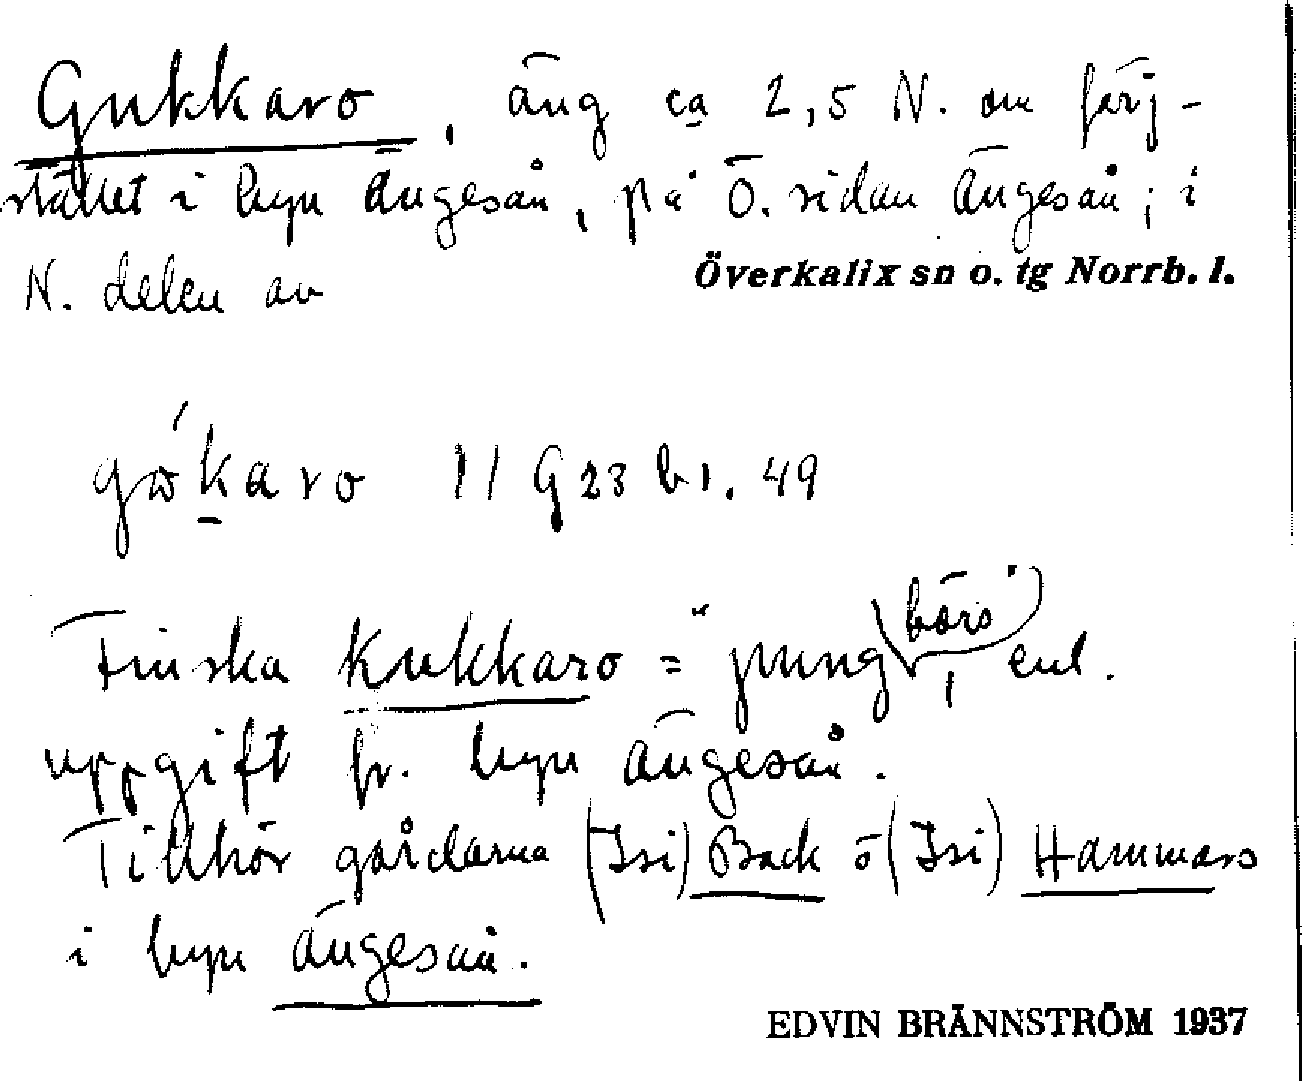 Gukkaro, äng ca 2,5 N. om färj-
stället i byn Ängesån, på Ö. sidan Ängesån; i
N. delen av
Överkalix sn o. tg Norrb. l.
karo 11 G 23 bl. 49
Finska Kukkaro = "pung, börs", enl.
uppgift fr. byn Ängesån.
Tillhör gårdarna (Isi) Back o (Isi) Hammars
i byn Ängesån.
EDVIN BRÄNNSTRÖM 1937